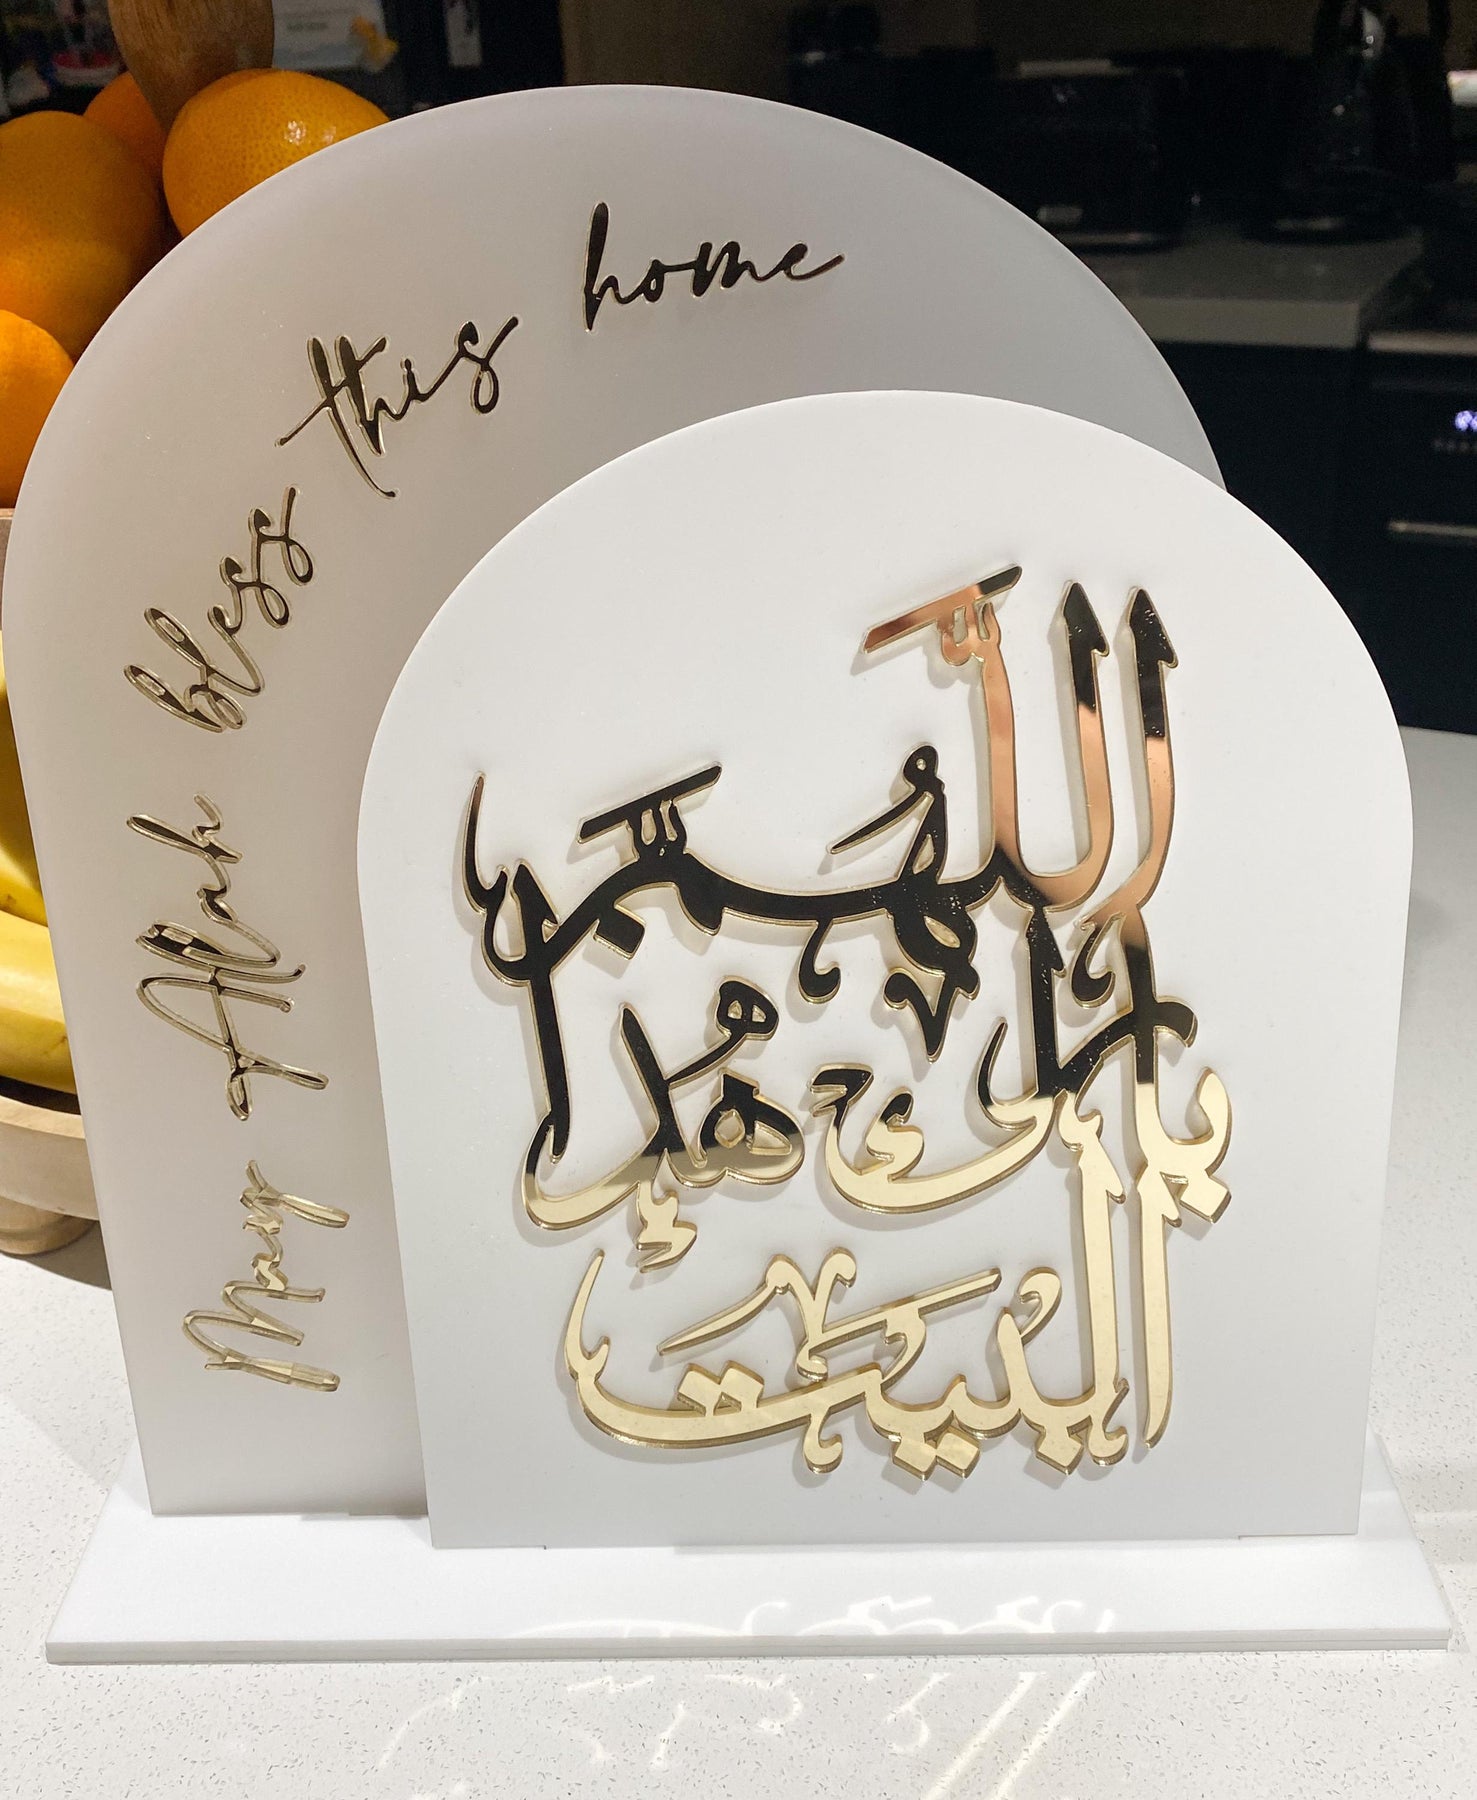 May Allah bless this home
اللهم
بارك هذا
البيت